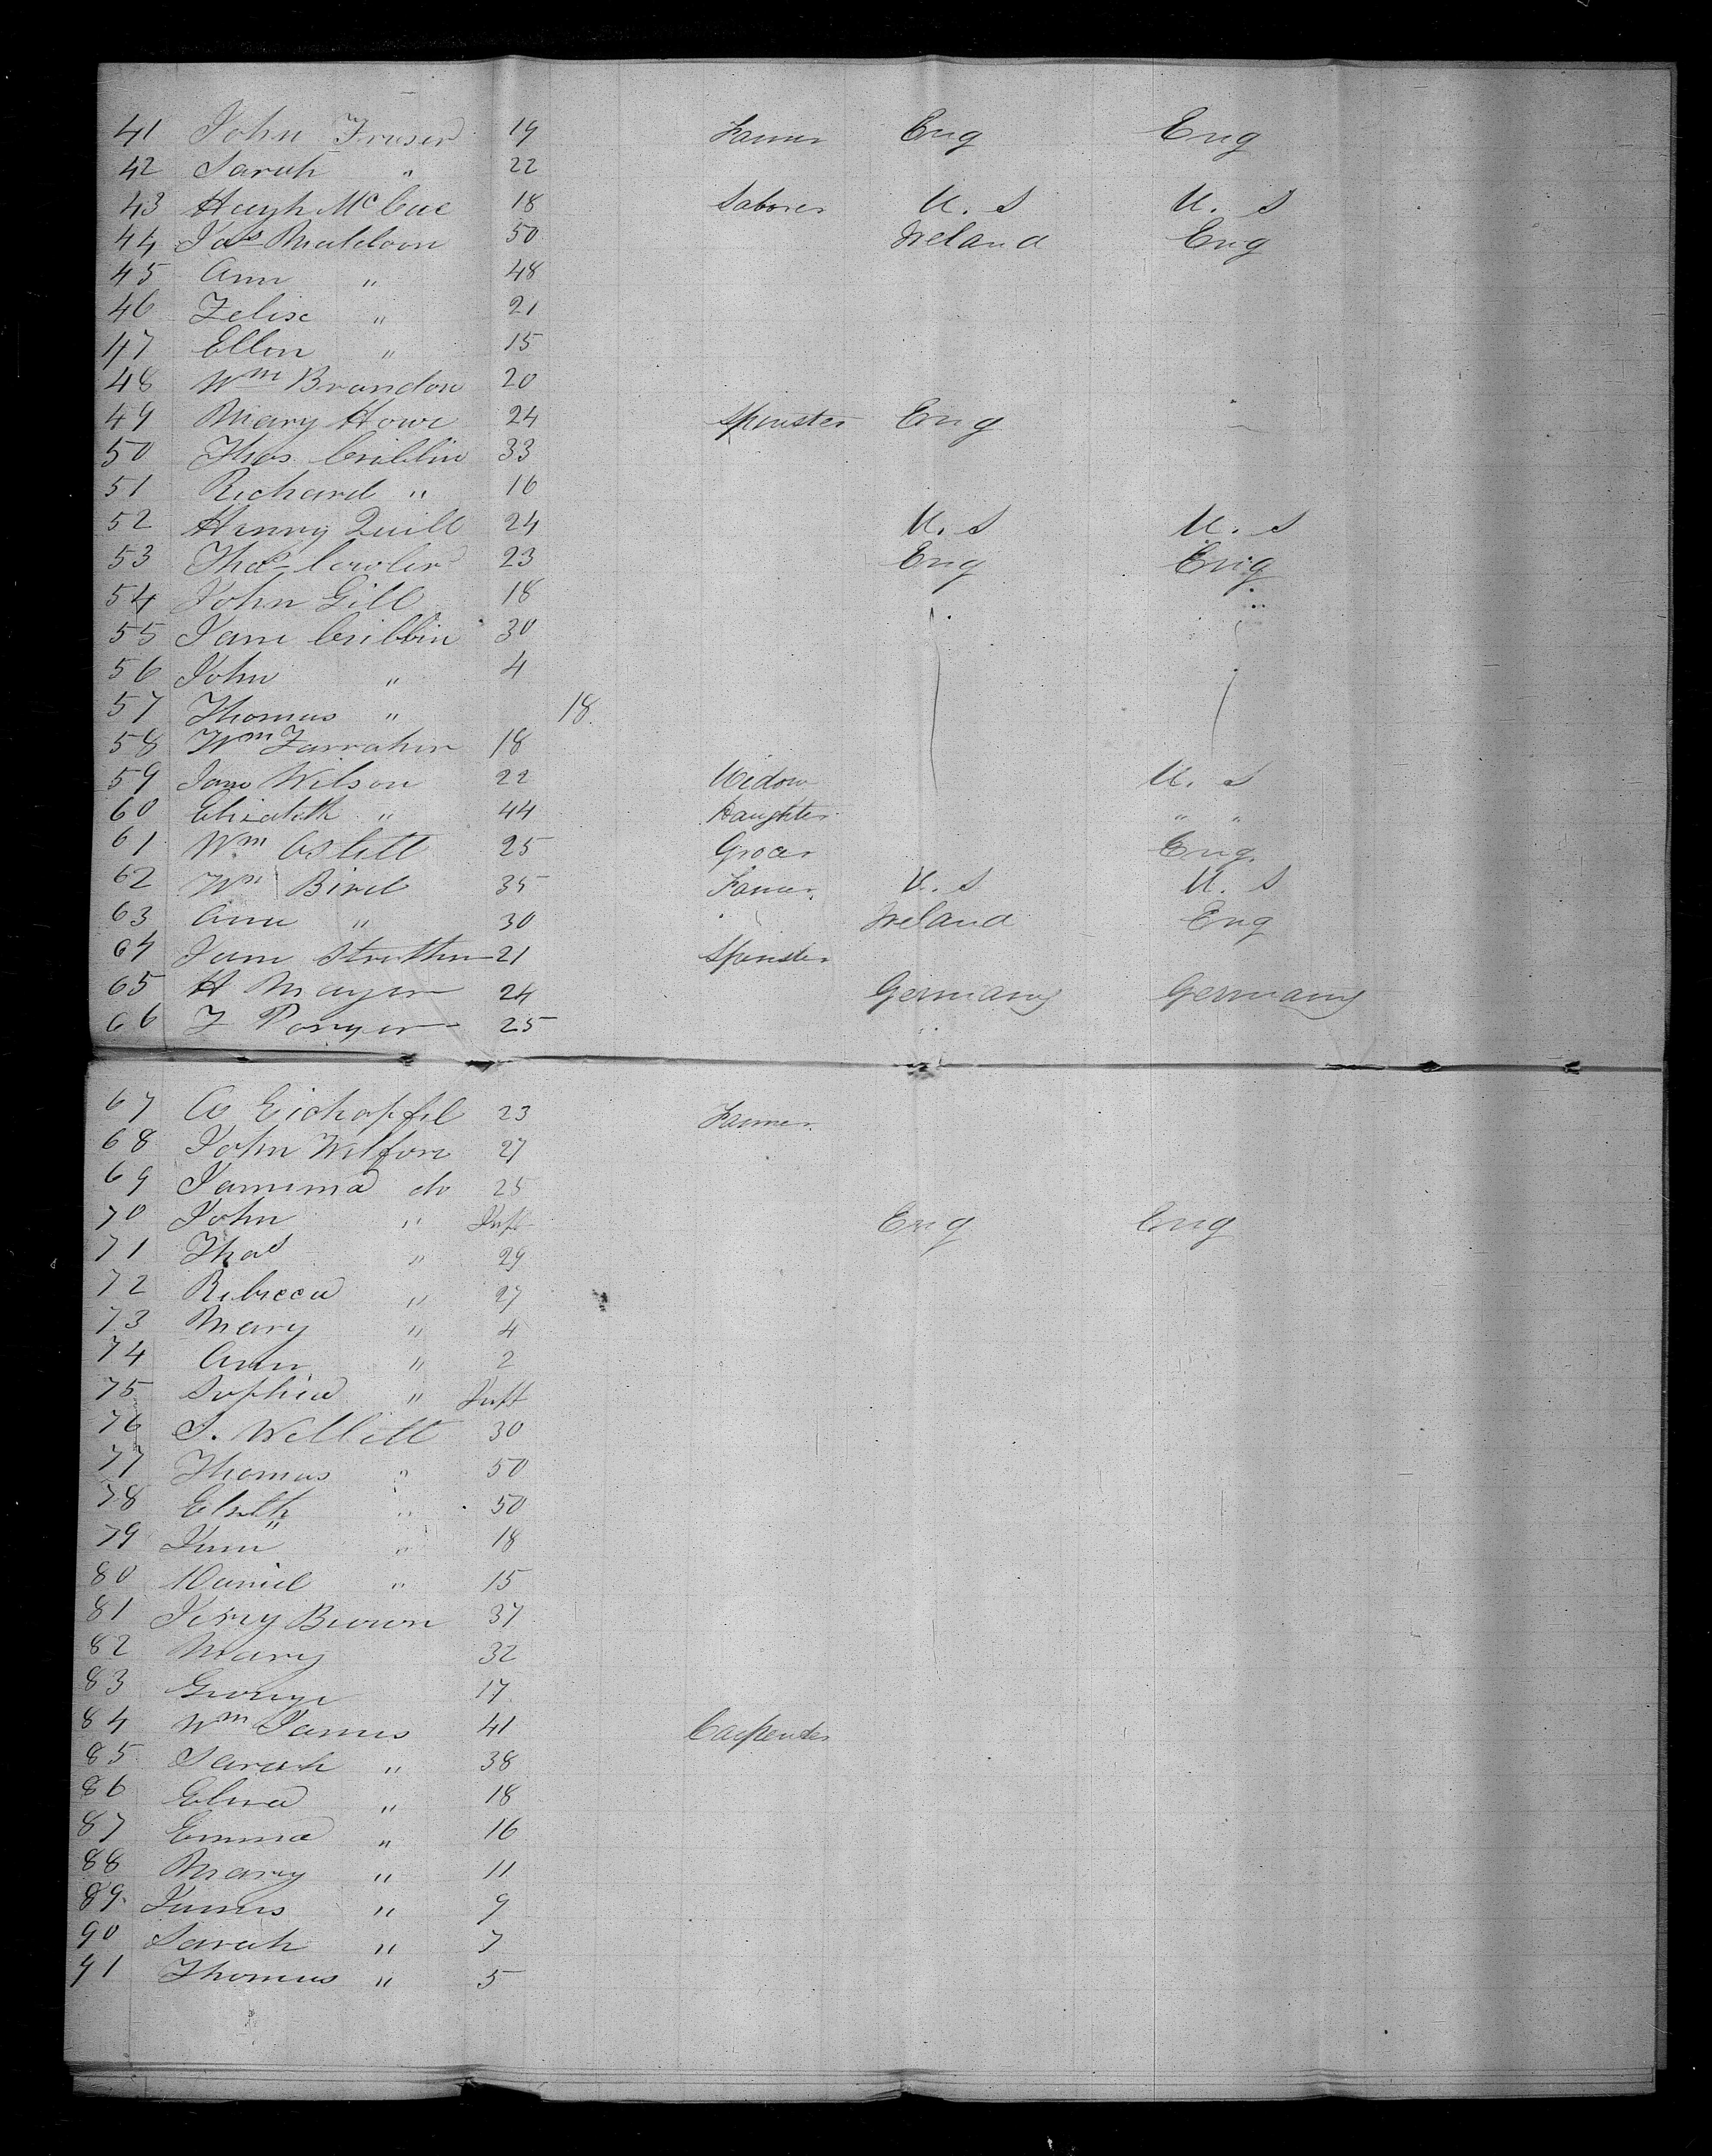 41 John Fraser 19 Farmer Eng Eng
42 Sarah " 22
43 Hugh McCue 18 Laborer U. S U. S
44 Jas 50 Ireland Eng
45 Ann " 48
46 Felix " 21
47 Ellen " 15
48 Wm Brandon 20
49 Mary Howe 24 Spinster Eng
50 Thos. Cribbin 33
51 Richard " 16
52 Henry Quill 24 U. S U. S
53 Thos 23 Eng Eng
54 John Gill 18
55 Jane Cribbin 30
56 John " 4
57 Thomas " 18
58 Wm Farraher 18
59 Jane Wilson 22 Widow U. S
60 Elizabeth " 44 Daughter " "
61 Wm 25 Grocer Eng.
62 Wm Bird 35 Farmer. U. S U. S
63 Ann " 30 Ireland Eng
64 Jane 21 Spinster
65 H Mayer 24 Germany Germany
66 F 25
67 23 Farmer.
68 John 27
69 Jamima do 25
70 John " Inft Eng Eng
71 Thos " 29
72 Rebecca " 27
73 Mary " 4
74 Ann " 2
75 Sophia " Inft
76 S. Wellett 30
77 Thomas " 50
78 Elizth " 50
79 Jane " 18
80 Daniel " 15
81 Jerry Brown 37
82 Mary 32
83 George 17
84 Wm James 41 Carpenter
85 Sarah " 38
86 Eliza " 18
87 Emma " 16
88 Mary " 11
89. James " 9
90 Sarah " 7
91 Thomas " 5